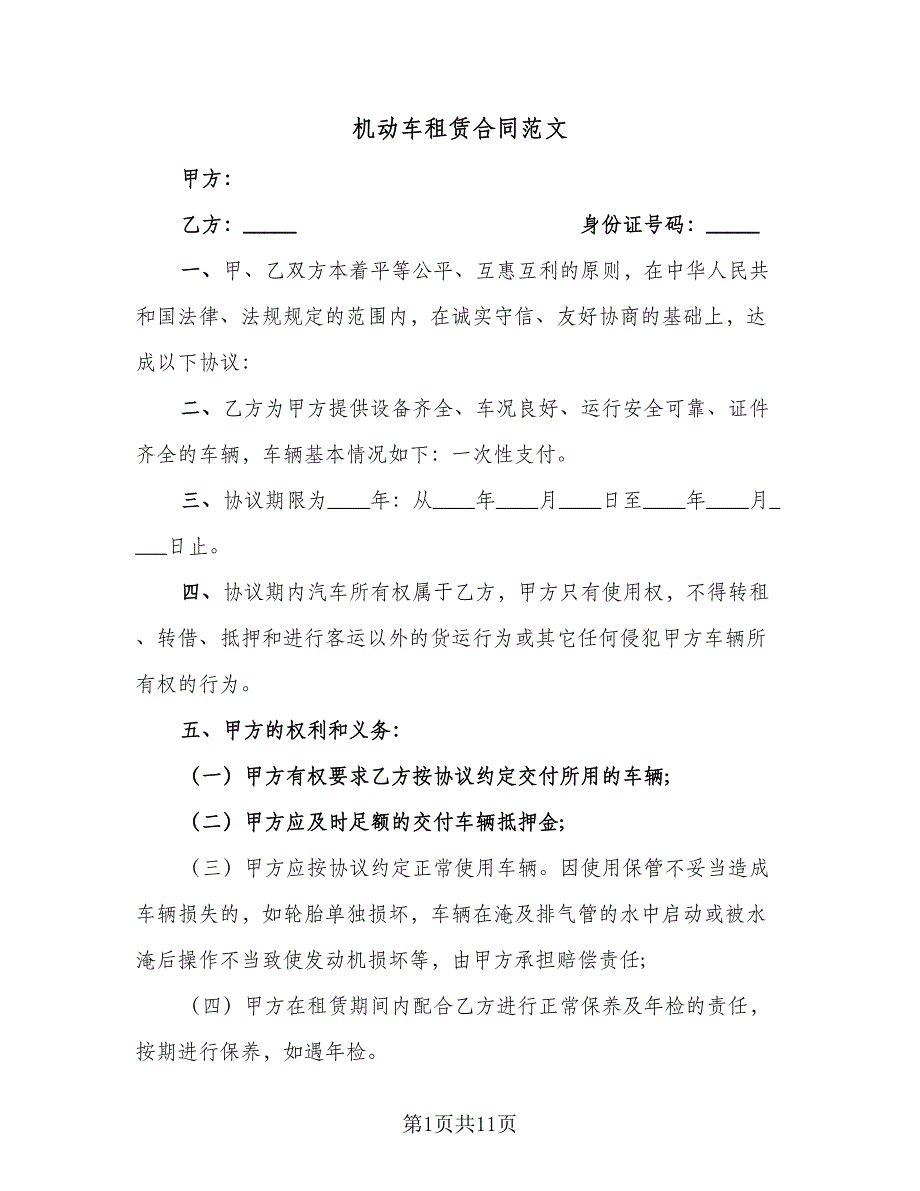 机动车租赁合同范文
甲方：
乙方：_____ 身份证号码：_____
一、甲、乙双方本着平等公平、互惠互利的原则，在中华人民共
和国法律、法规规定的范围内，在诚实守信、友好协商的基础上，达
成以下协议：
二、乙方为甲方提供设备齐全、车况良好、运行安全可靠、证件
齐全的车辆，车辆基本情况如下：一次性支付。
三、协议期限为____年：从____年____月____日至____年____月_
___日止。
四、协议期内汽车所有权属于乙方，甲方只有使用权，不得转租
、转借、抵押和进行客运以外的货运行为或其它任何侵犯甲方车辆所
有权的行为。
五、甲方的权利和义务：
（一）甲方有权要求乙方按协议约定交付所用的车辆;
（二）甲方应及时足额的交付车辆抵押金;
（三）甲方应按协议约定正常使用车辆。因使用保管不妥当造成
车辆损失的，如轮胎单独损坏，车辆在淹及排气管的水中启动或被水
淹后操作不当致使发动机损坏等，由甲方承担赔偿责任;
（四）甲方在租赁期间内配合乙方进行正常保养及年检的责任，
按期进行保养，如遇年检。
第1页共11页